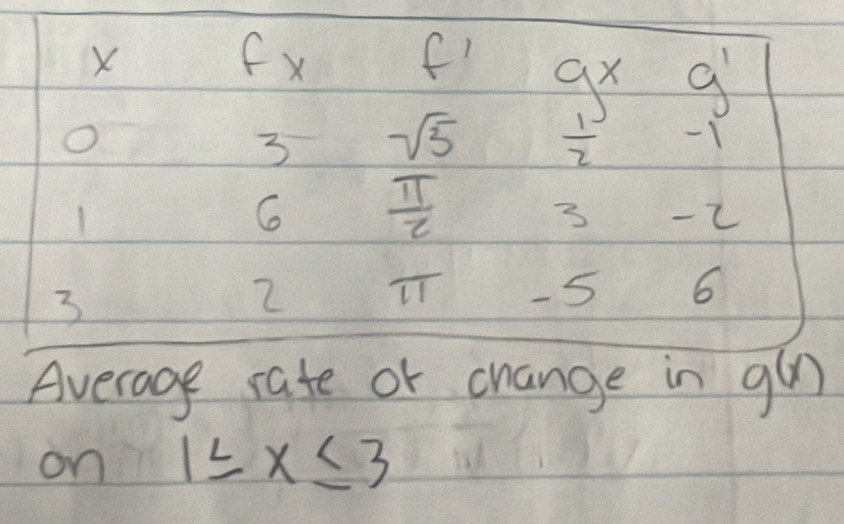 x fx f' gx g'
0 3 √5 1/2 -1
1 6 π/2 3 -2
3 2 π -5 6
Average rate of change in g(x)
on 1 ≤ x ≤ 3